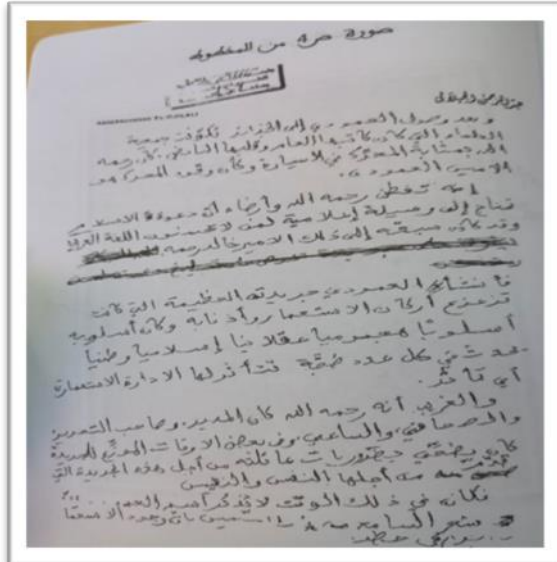 صورة ص 4 من المخطوط
عبد الرحمن الجيلالي
و بعد وصول العمودي إلى الجزائر تكونت جمعية
العلماء التي كان كاتبها العام وقلبها النابض، كان رحمه
الله بمثابة المحرك في السيارة وكان وقود المحرك هو
الأمين العمودي.
إنه تفطن رحمه الله وأرضاه أن دعوة الإسلام
تحتاج إلى وسيلة إعلامية لمن لا يحسنون اللغة العربية
وقد كان سبقه إلى ذلك الأمير خالد رحمه الله
فأنشأ العمودي جريدته العظيمة التي كانت
تزعزع أركان الاستعمار وأذنابه وكان أسلوبه
أسلوبا هجوميا عقلانيا إسلاميا وطنيا
يحدث في كل عدد ضجة تتأثر لها الادارة الاستعمارية
أي تأثر.
والغريب أنه رحمه الله كان المدير وصاحب التحرير
والصحافي، والساعي، وفي بعض الأوقات الموزع للجريدة
كان يضحي بضروريات عائلته من أجل هذه الجريدة التي
من أجلها النفس والنفيس
فكانه في ذلك الوقت لا يذكر اسم